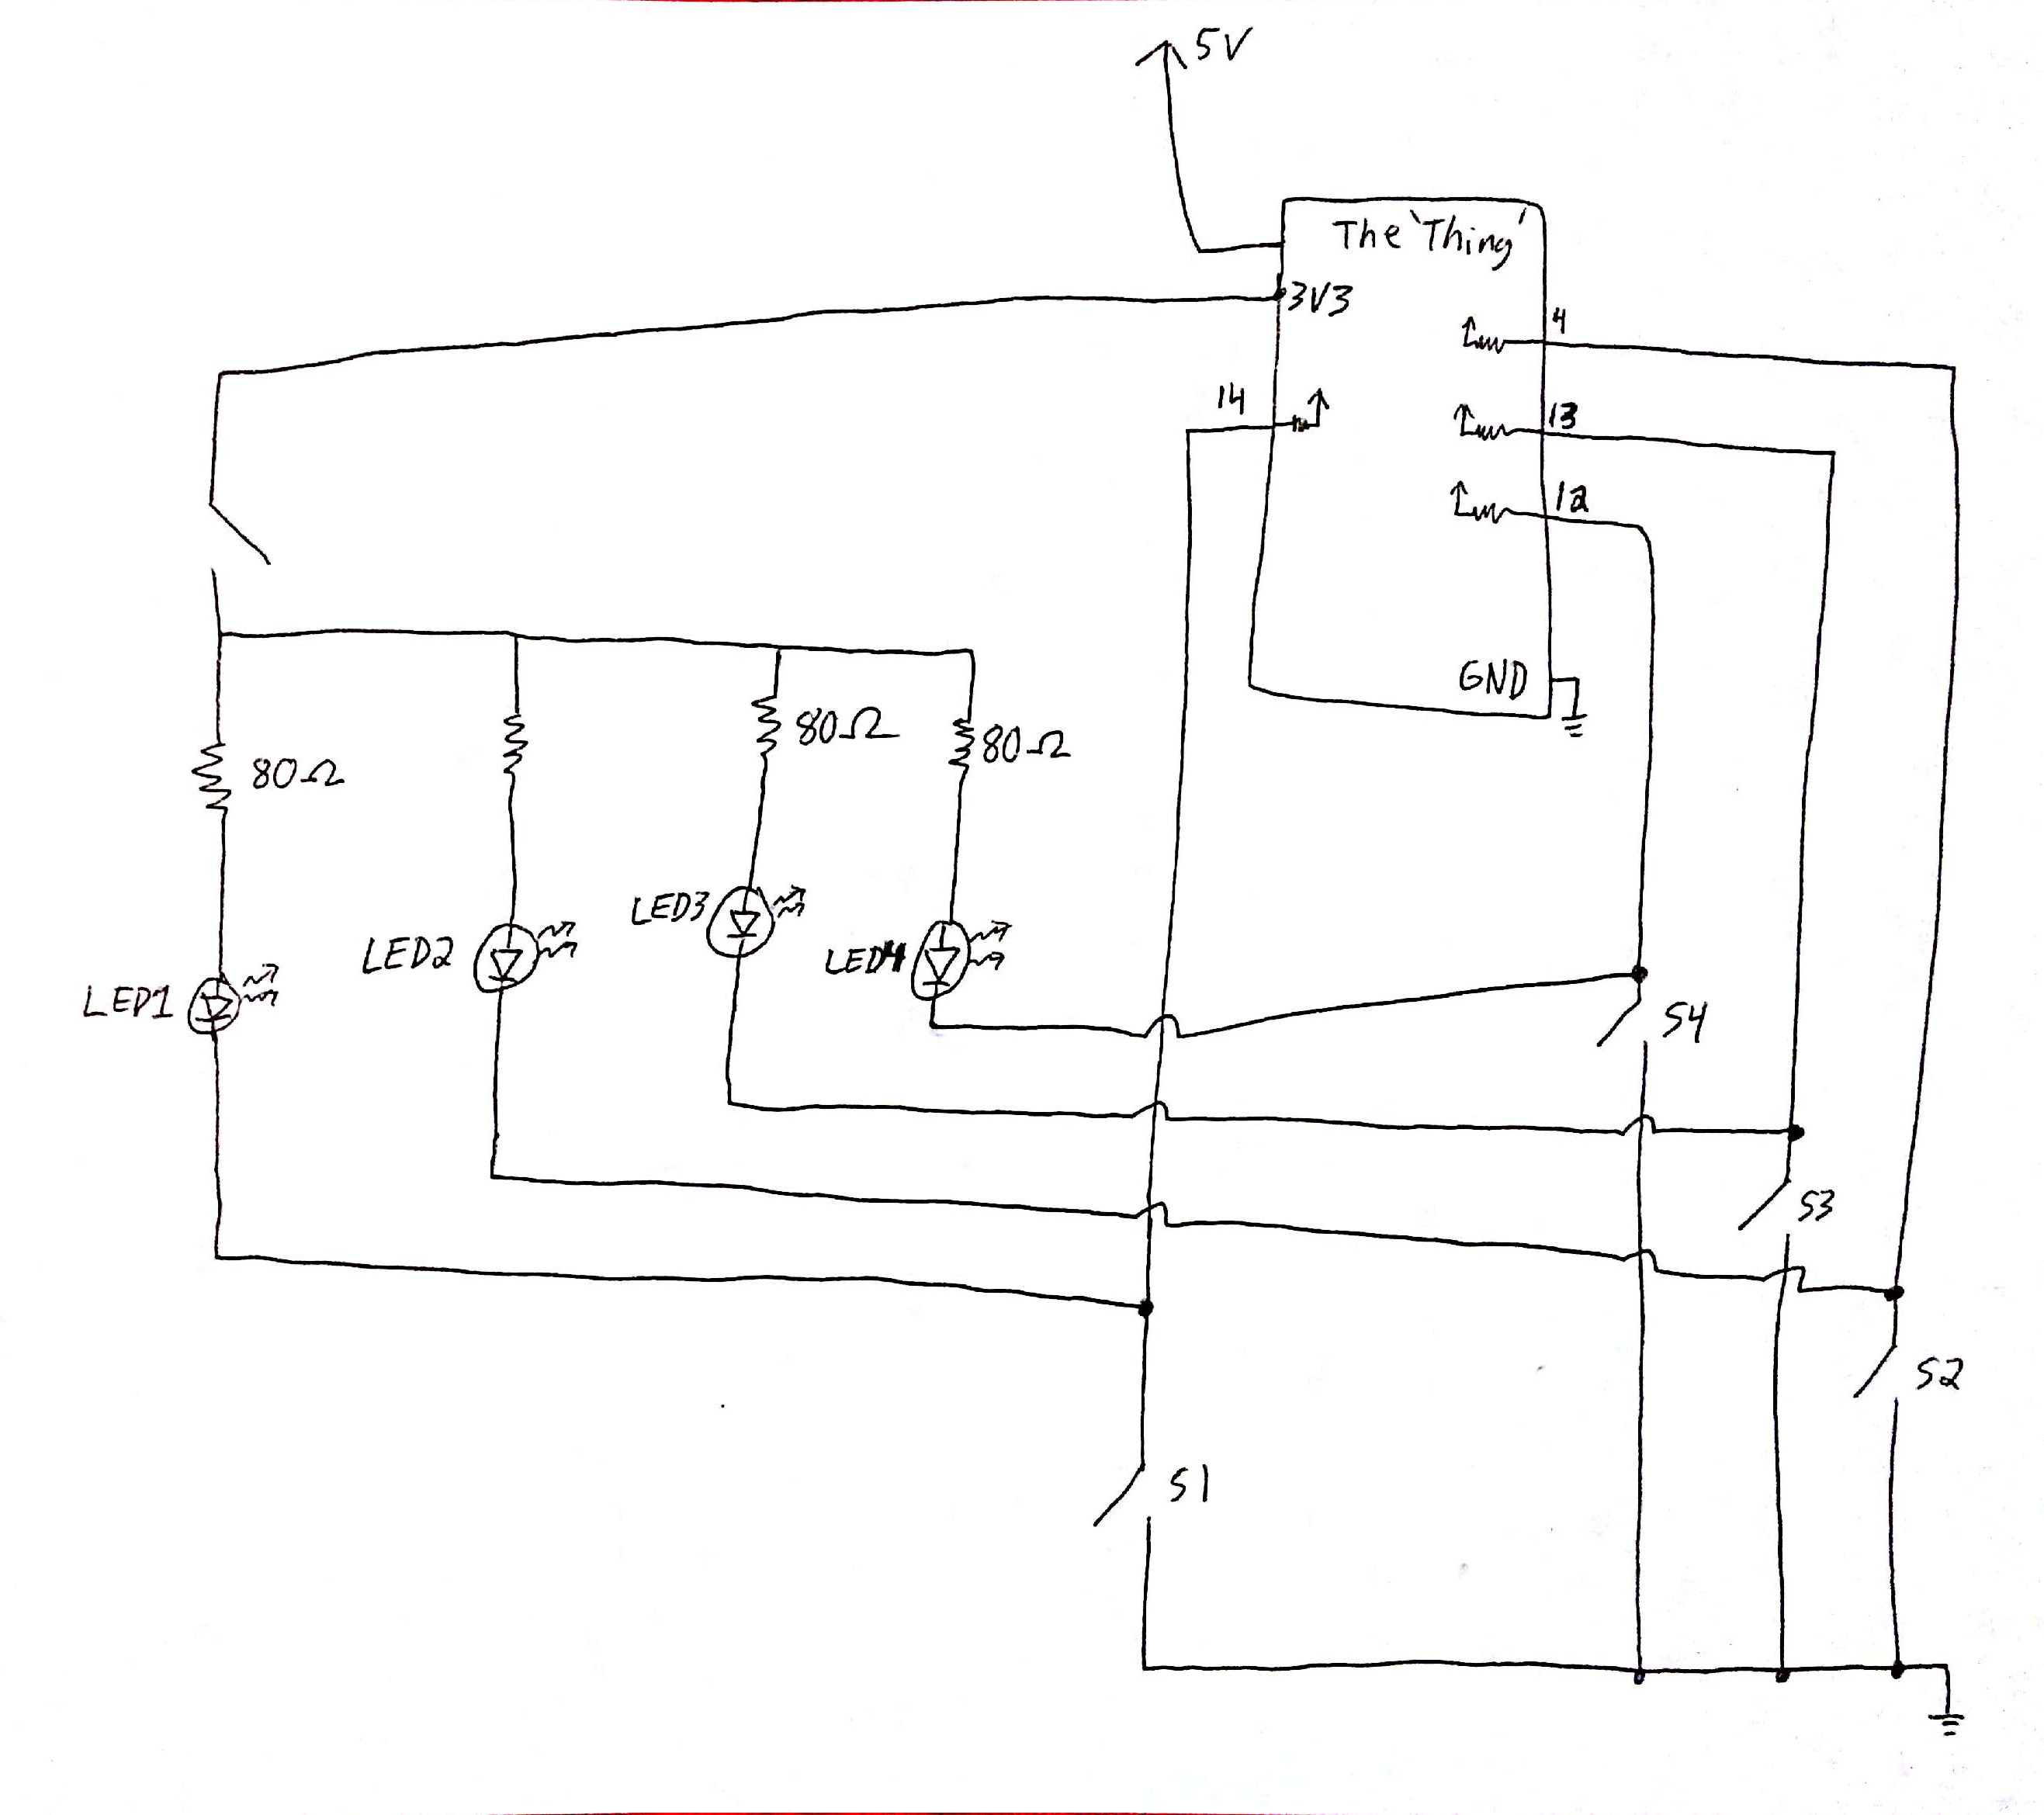 5V
The 'Thing'
3V3
4
14
13
12
GND
80Ω
80Ω
80Ω
LED3
LED2
LED4
LED1
S4
S3
S2
S1